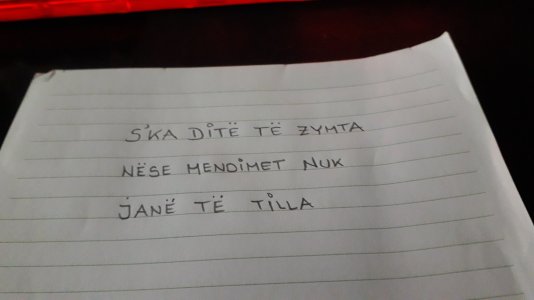 S'KA DITË TË ZYMTA
NËSE MENDIMET NUK
JANË TË TILLA